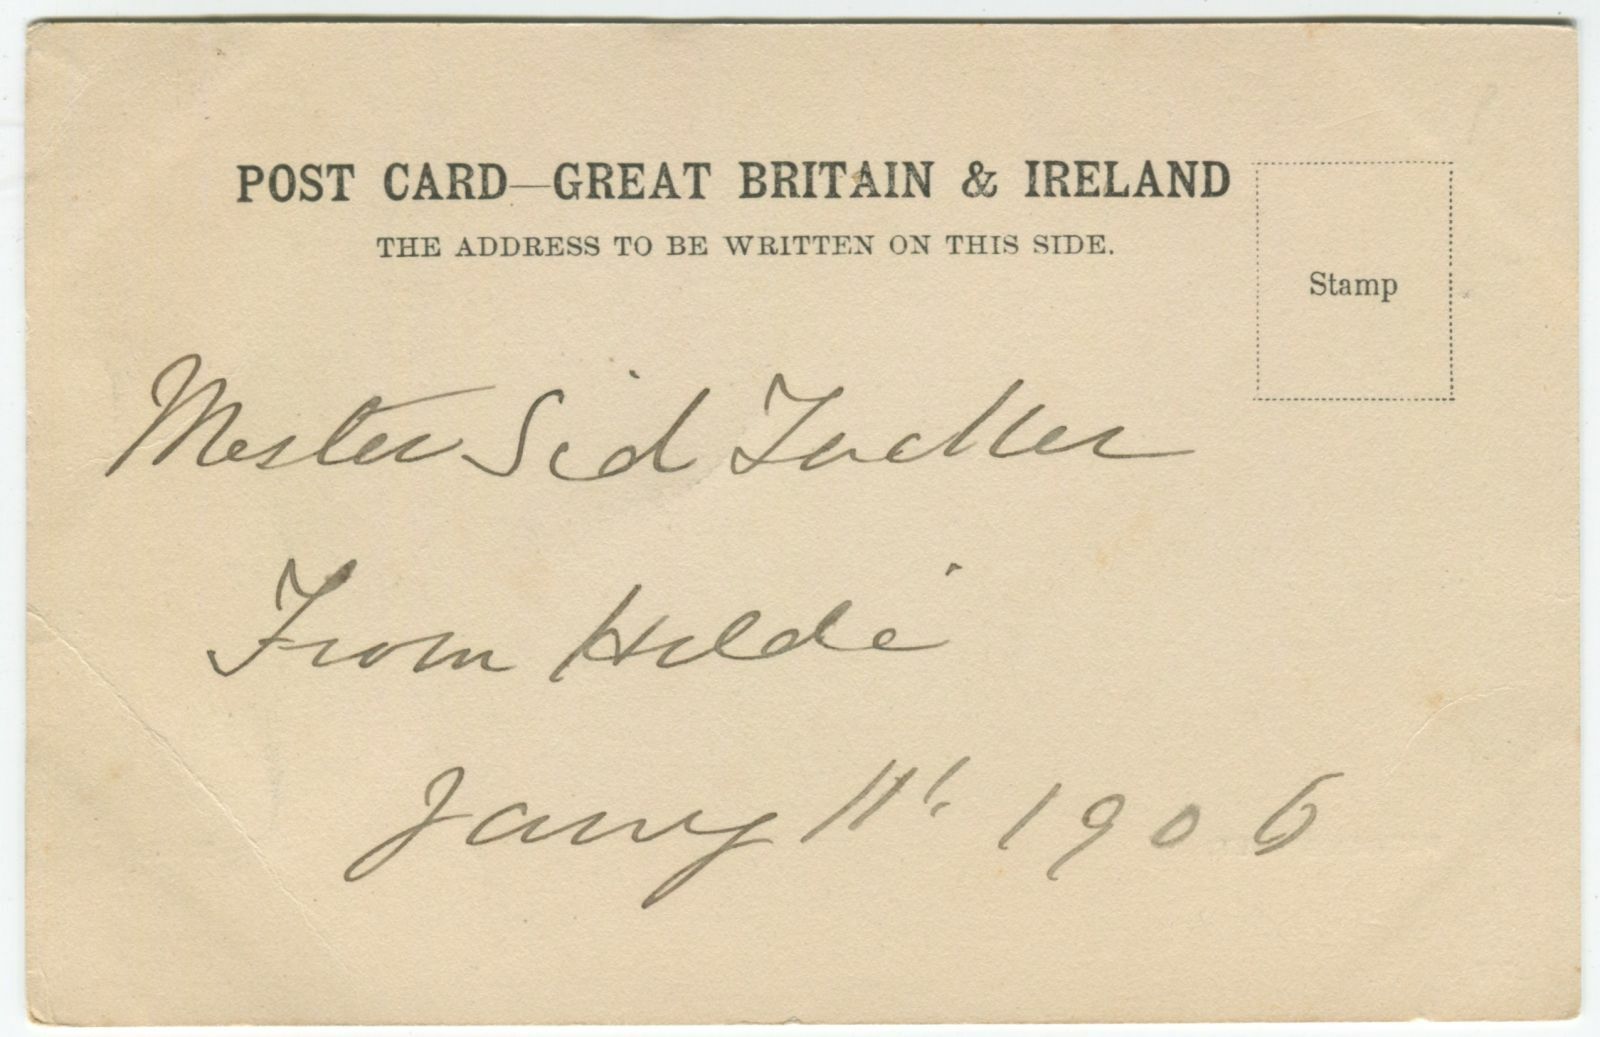 POST CARD—GREAT BRITAIN & IRELAND
THE ADDRESS TO BE WRITTEN ON THIS SIDE.
Stamp
Mester Sid Tucker
From Hilda
Jany 11th 1906